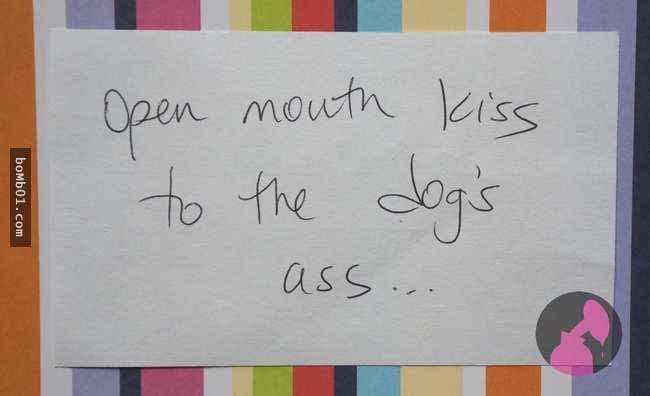 Open mouth kiss
to the dog's
ass...
boMb01.com